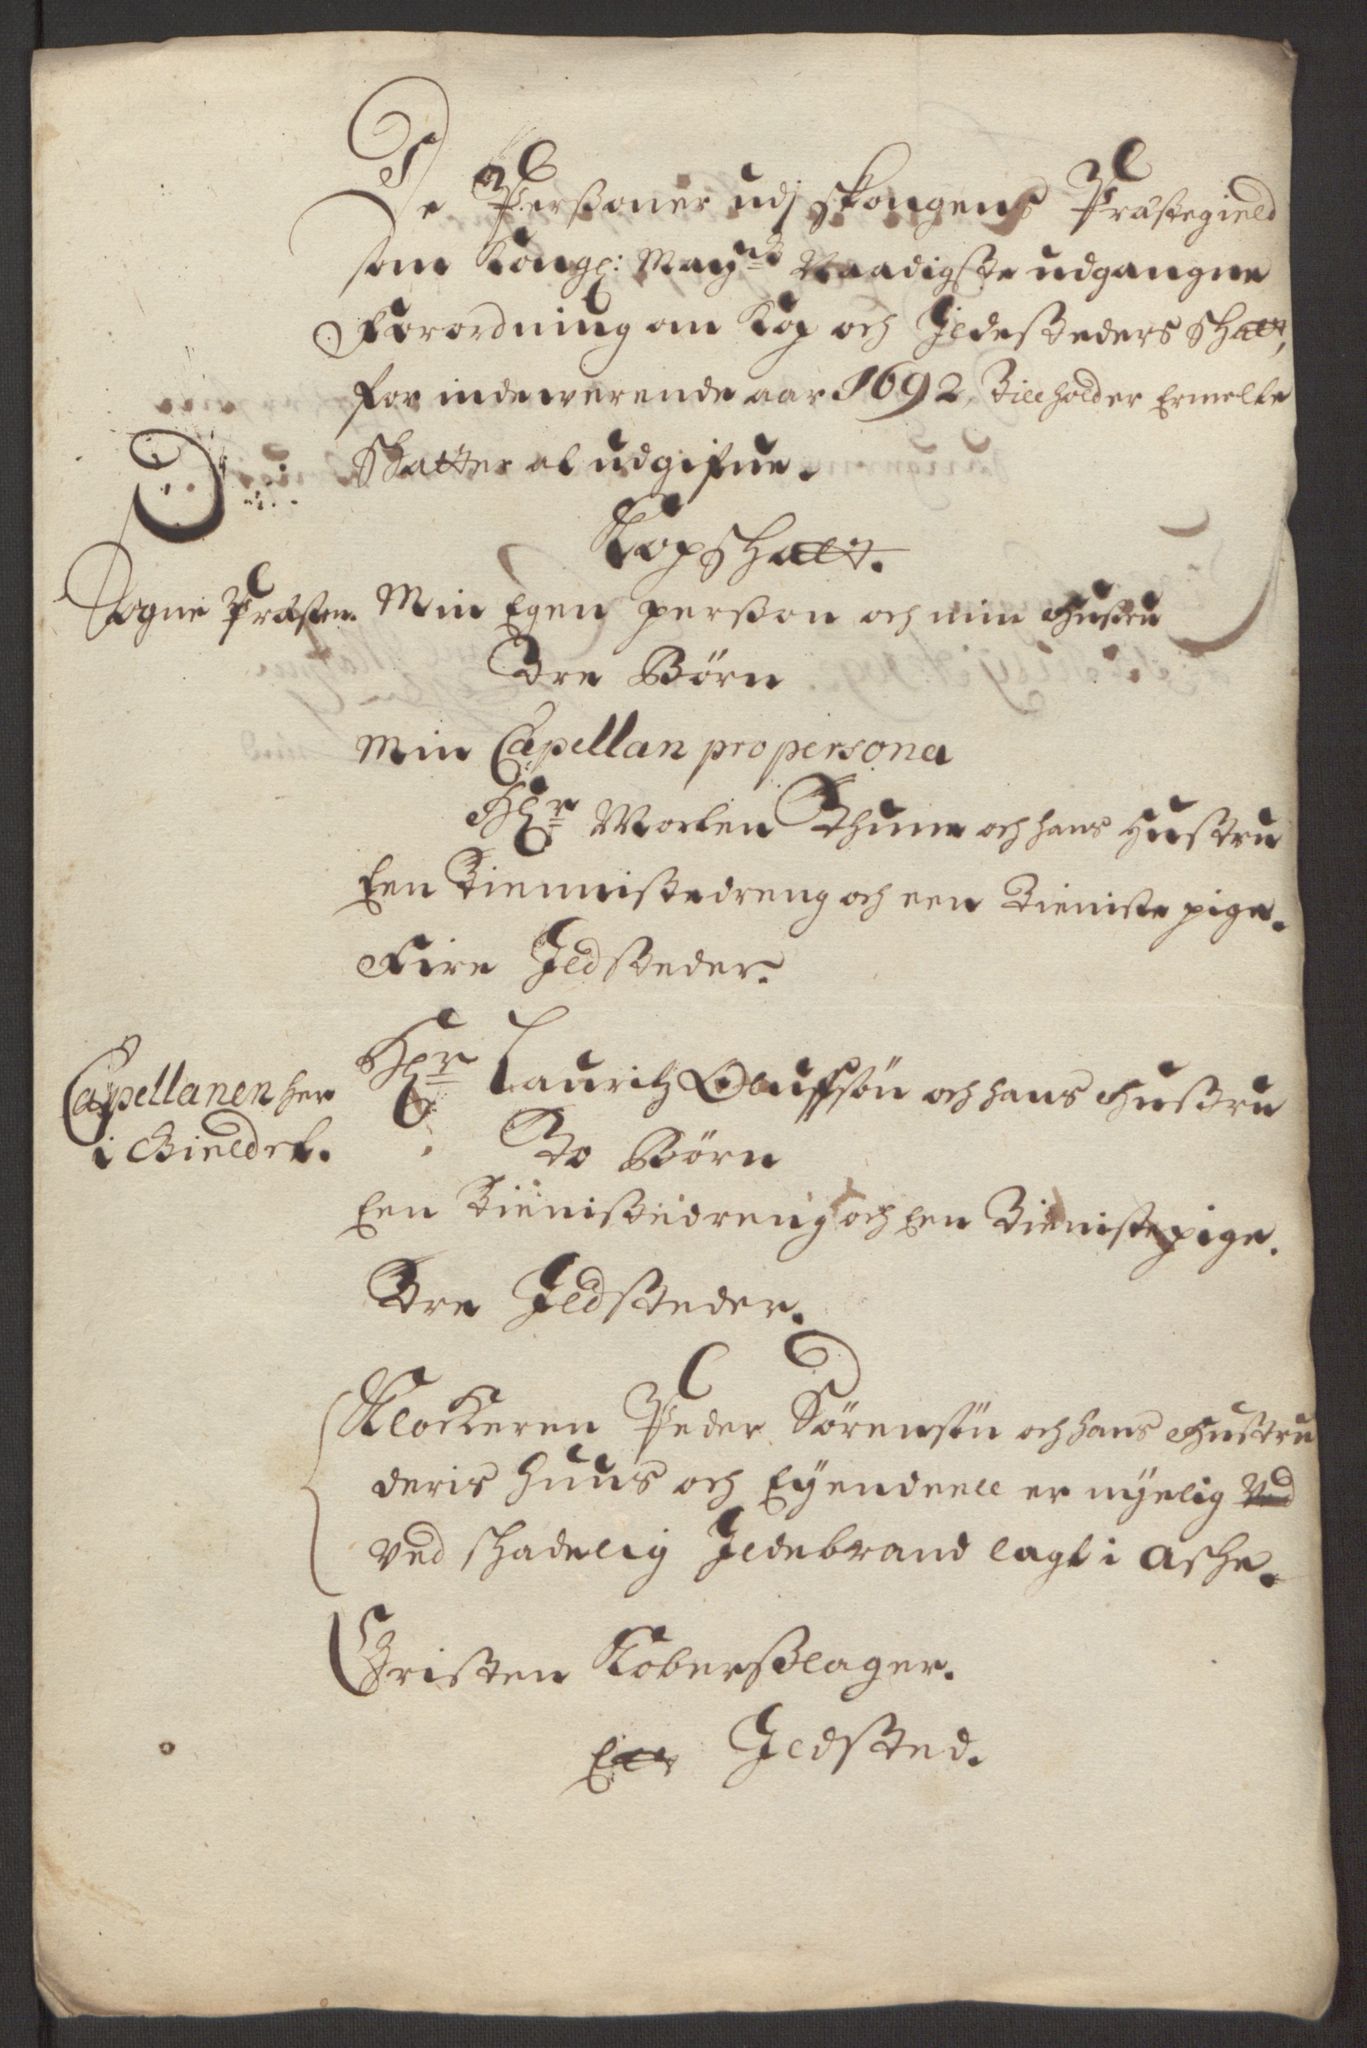 De Perßoner udj Skougens Præstegield
som Kongl: May.ts Naadigste udgangne
Forordning om Kop och Jldesteders skatt,
for indeværende aar 1692, Tilholder Ermelte
skatter at udgifue.
Kopskatt.
Sogne Præsten. Min Egen perßon och min Hustru
Tre Børn
Min Capellan pro persona
Hr Morten Thune och hans Hustru
Een Tiennistedreng och een Tieniste pige.
Fire Jldsteder.
Capellanen her
i Gieldet.
Hr Lauritz Oluffsøn och hans Hustru
To Børn
Een Tienistedreng och Een Tienistepige.
Tre Jldsteder.
Klockeren Peder Sørensøn och hans Hustru
deris Huus och Eyendeell er nyelig Ved
ved skadelig Jldebrand lagt i Aske.
Christen Koberslager.
Ett Jldsted.